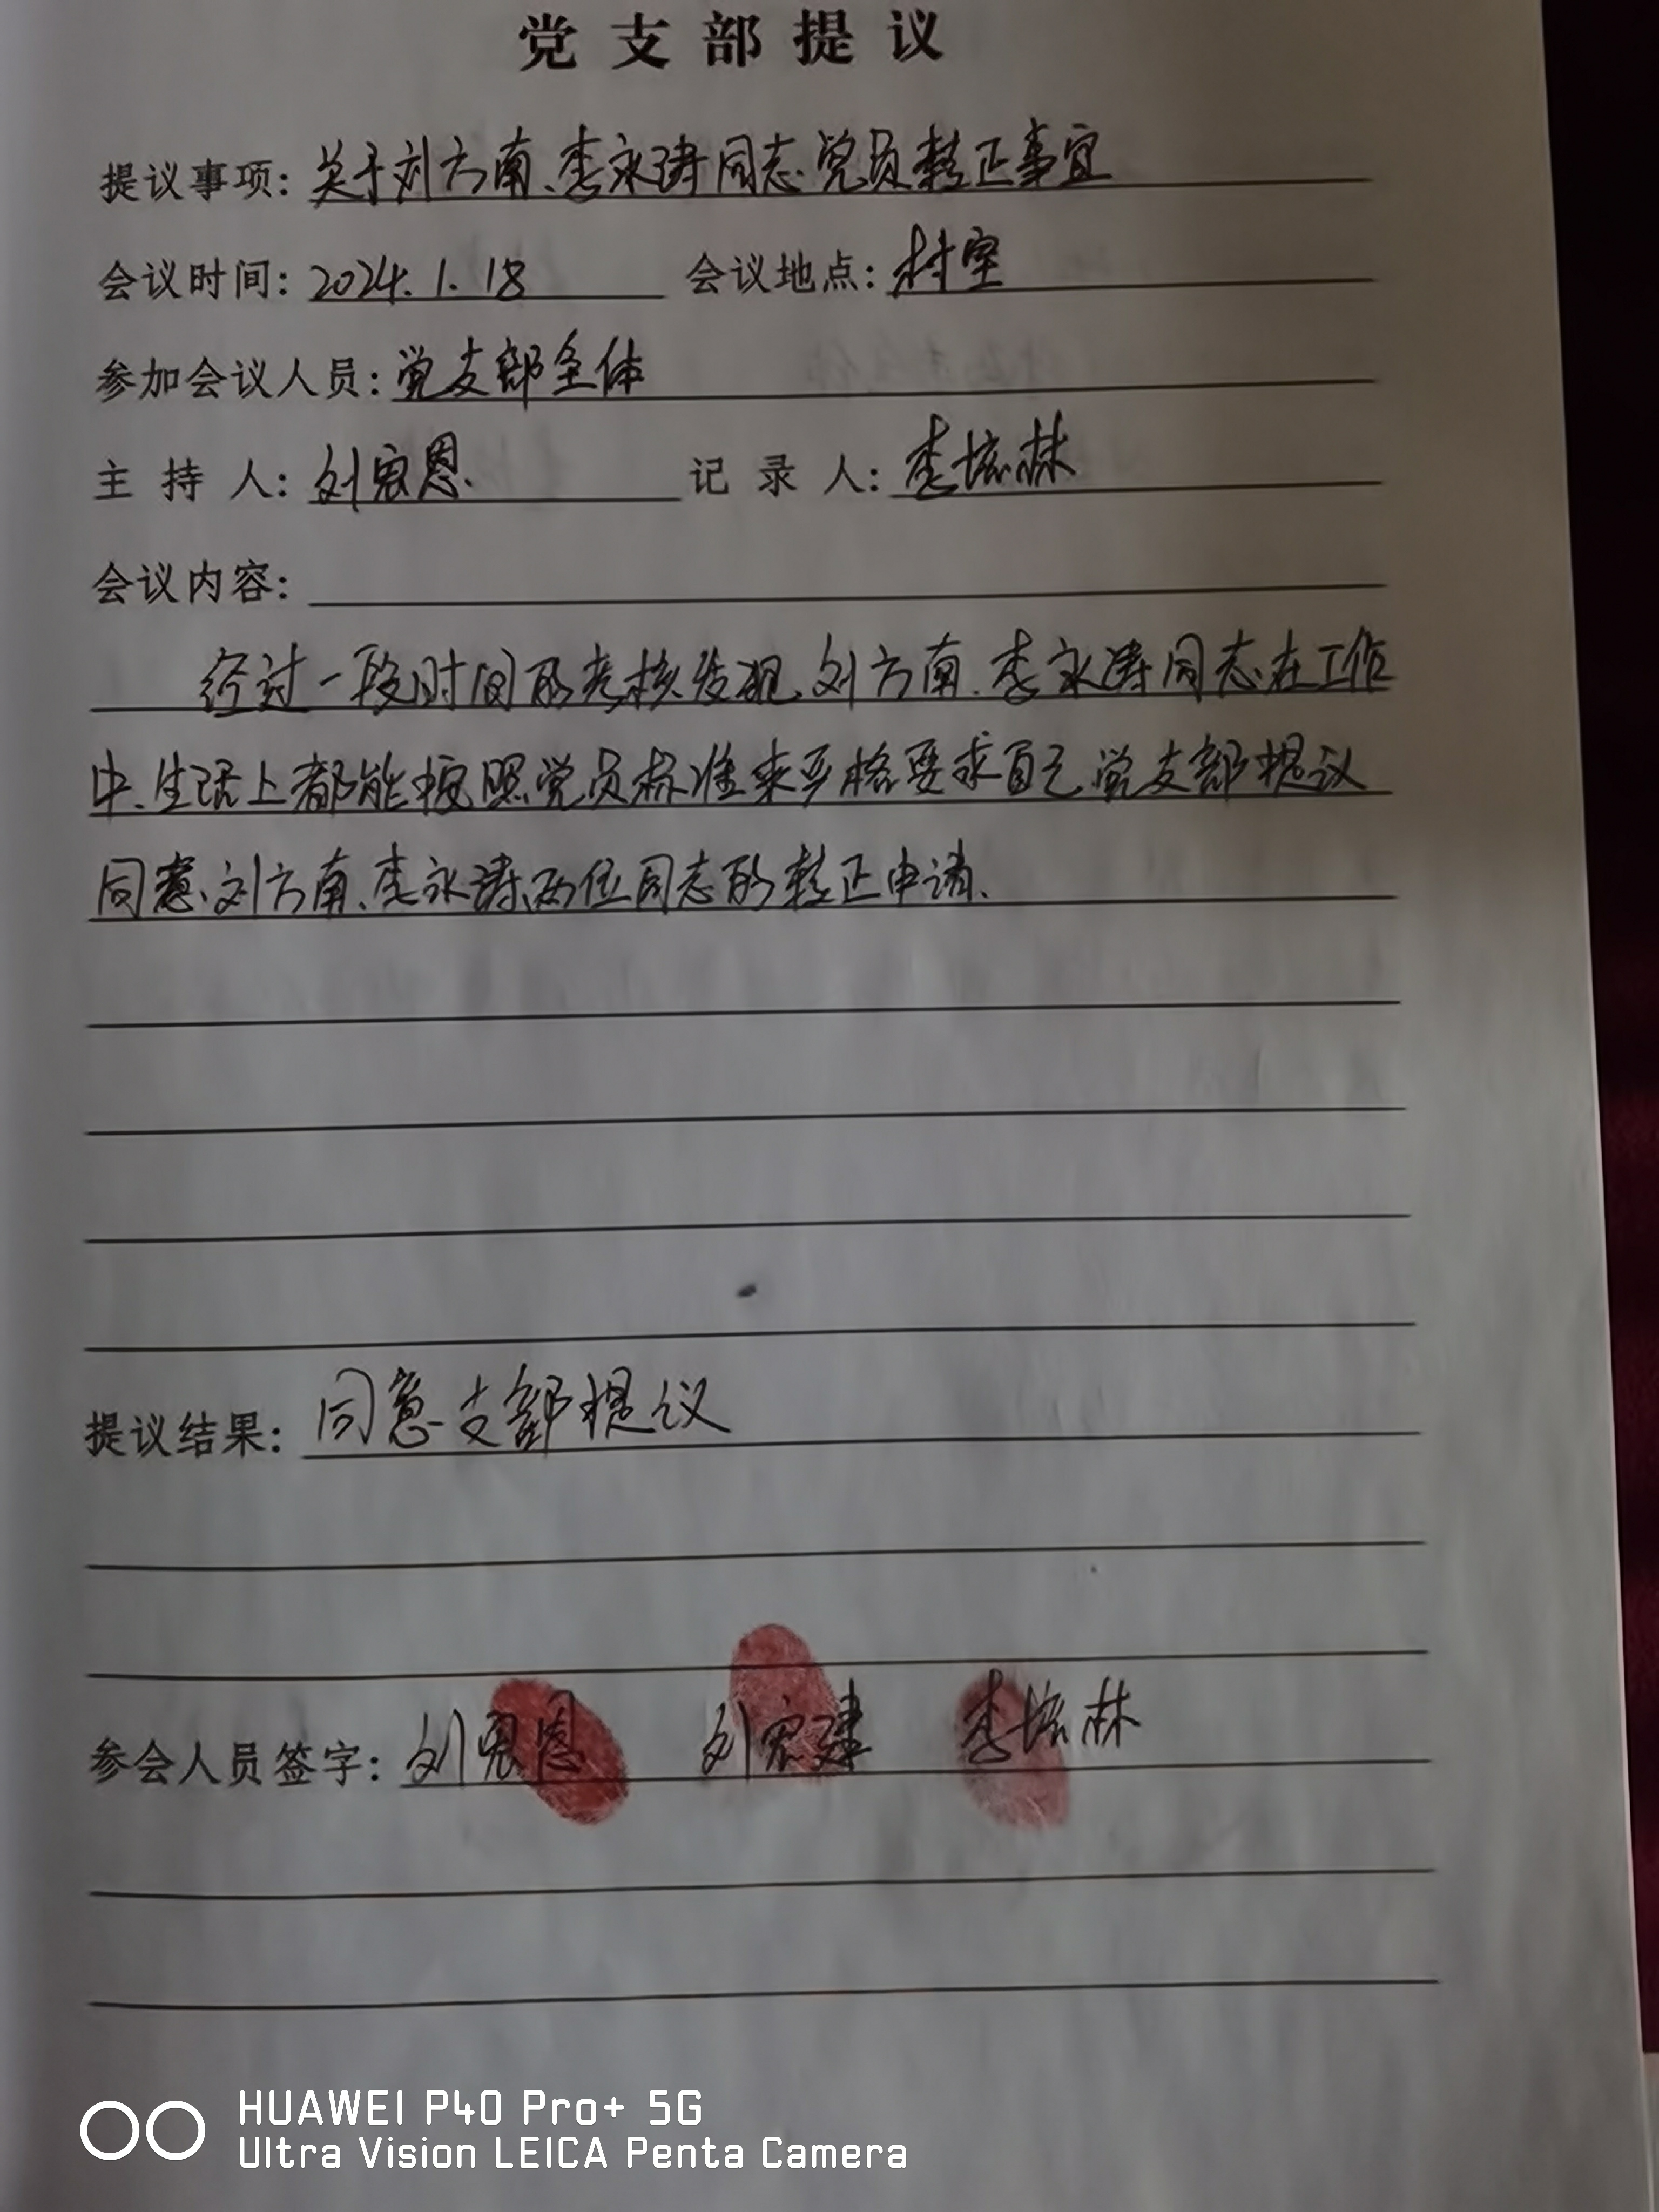 党支部提议
提议事项：关于刘方南、李永涛同志党员转正事宜
会议时间：2024.1.18 会议地点：村室
参加会议人员：党支部全体
主持人：刘宏恩 记录人：李培林
会议内容：
经过一段时间的考核发现、刘方南、李永涛同志在工作
中、生活上都能按照党员标准来严格要求自己党支部提议
同意、刘方南、李永涛两位同志的转正申请、
提议结果：同意支部提议
参会人员签字：刘宏恩 刘宏建 李培林
HUAWEI P40 Pro+ 5G
Ultra Vision LEICA Penta Camera